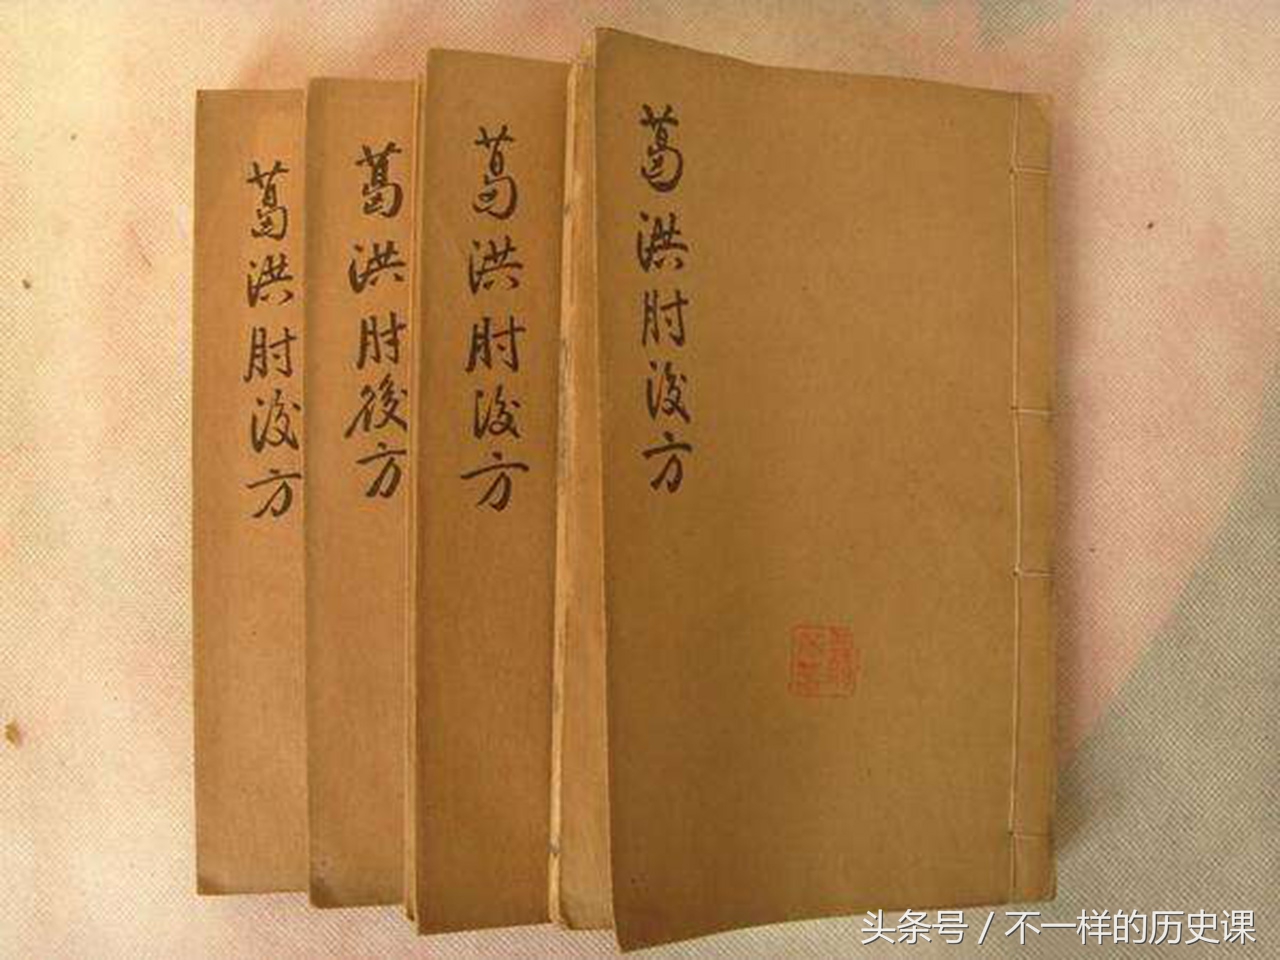 葛洪肘後方
葛洪肘後方
葛洪肘後方
葛洪肘後方
头条号 / 不一样的历史课